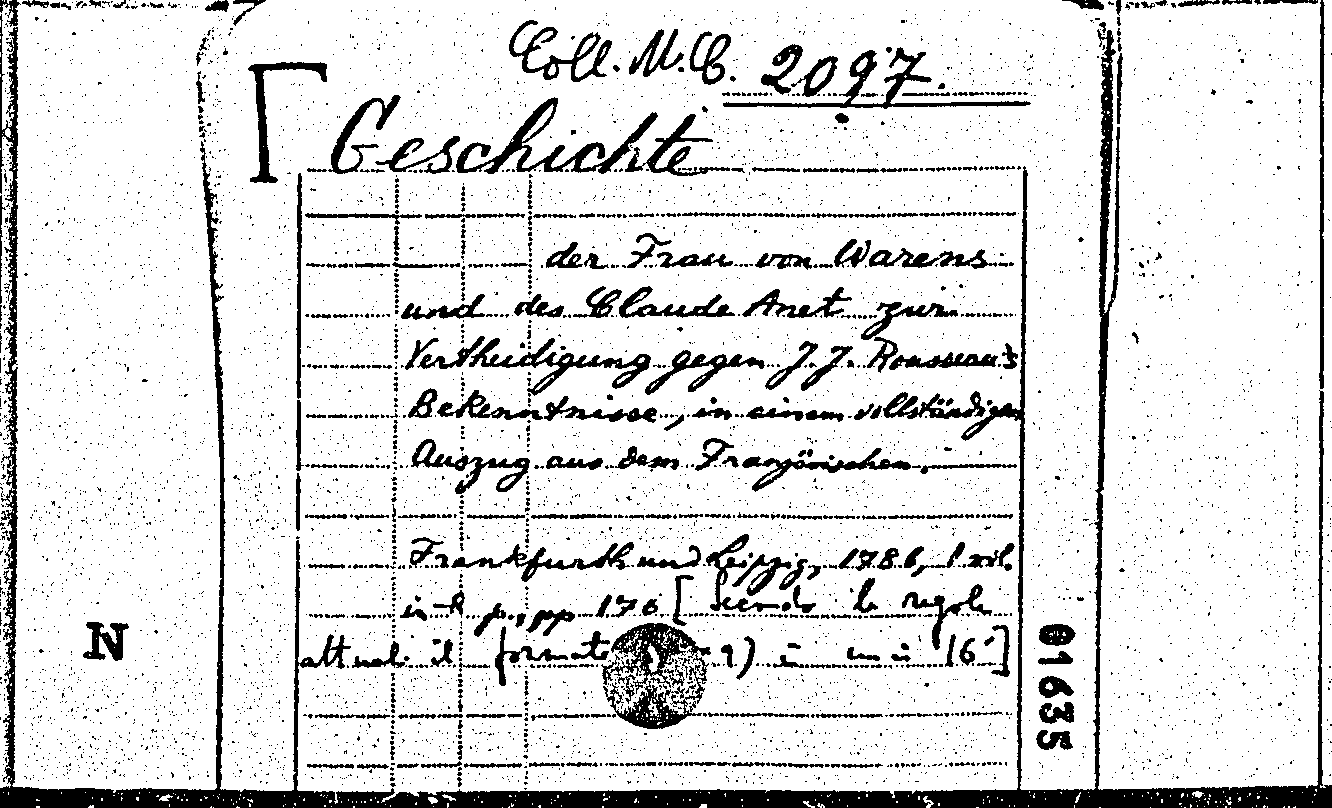 Coll. M.C. 2097.
Geschichte
der Frau von Warens
und des Claude Anet zur
Vertheidigung gegen J. J. Rousseau's
Bekenntnisse, in einem vollständigen
Auszug aus dem Französischen.
Frankfurth und Leipzig, 1786, 1 vol.
in-8 p., pp 176 [Secondo le regole
attuali il formato 9) è un in 16°]
N
01635